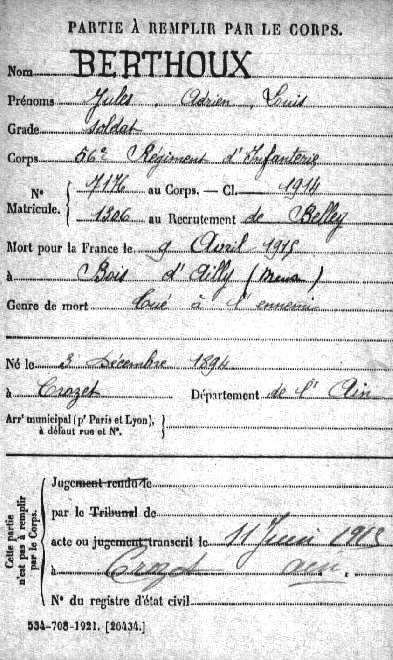 PARTIE À REMPLIR PAR LE CORPS.
Nom BERTHOUX
Prénoms Jules, Adrien, Louis
Grade soldat
Corps 56e Régiment d'Infanterie
N° Matricule. { 7176 au Corps. — Cl. 1914
1306 au Recrutement de Belley
Mort pour la France le 9 Avril 1915
à Bois d'Ailly (Meuse)
Genre de mort Tué à l'ennemi
Né le 3 Décembre 1894
à Crozet Département de l'Ain
Arr' municipal (p' Paris et Lyon), }
à défaut rue et N°.
Cette partie n'est pas à remplir par le Corps. {
Jugement rendu le
par le Tribunal de
acte ou jugement transcrit le 11 Juin 1915
à Crozet Ain.
N° du registre d'état civil
534-708-1921. [26434.]